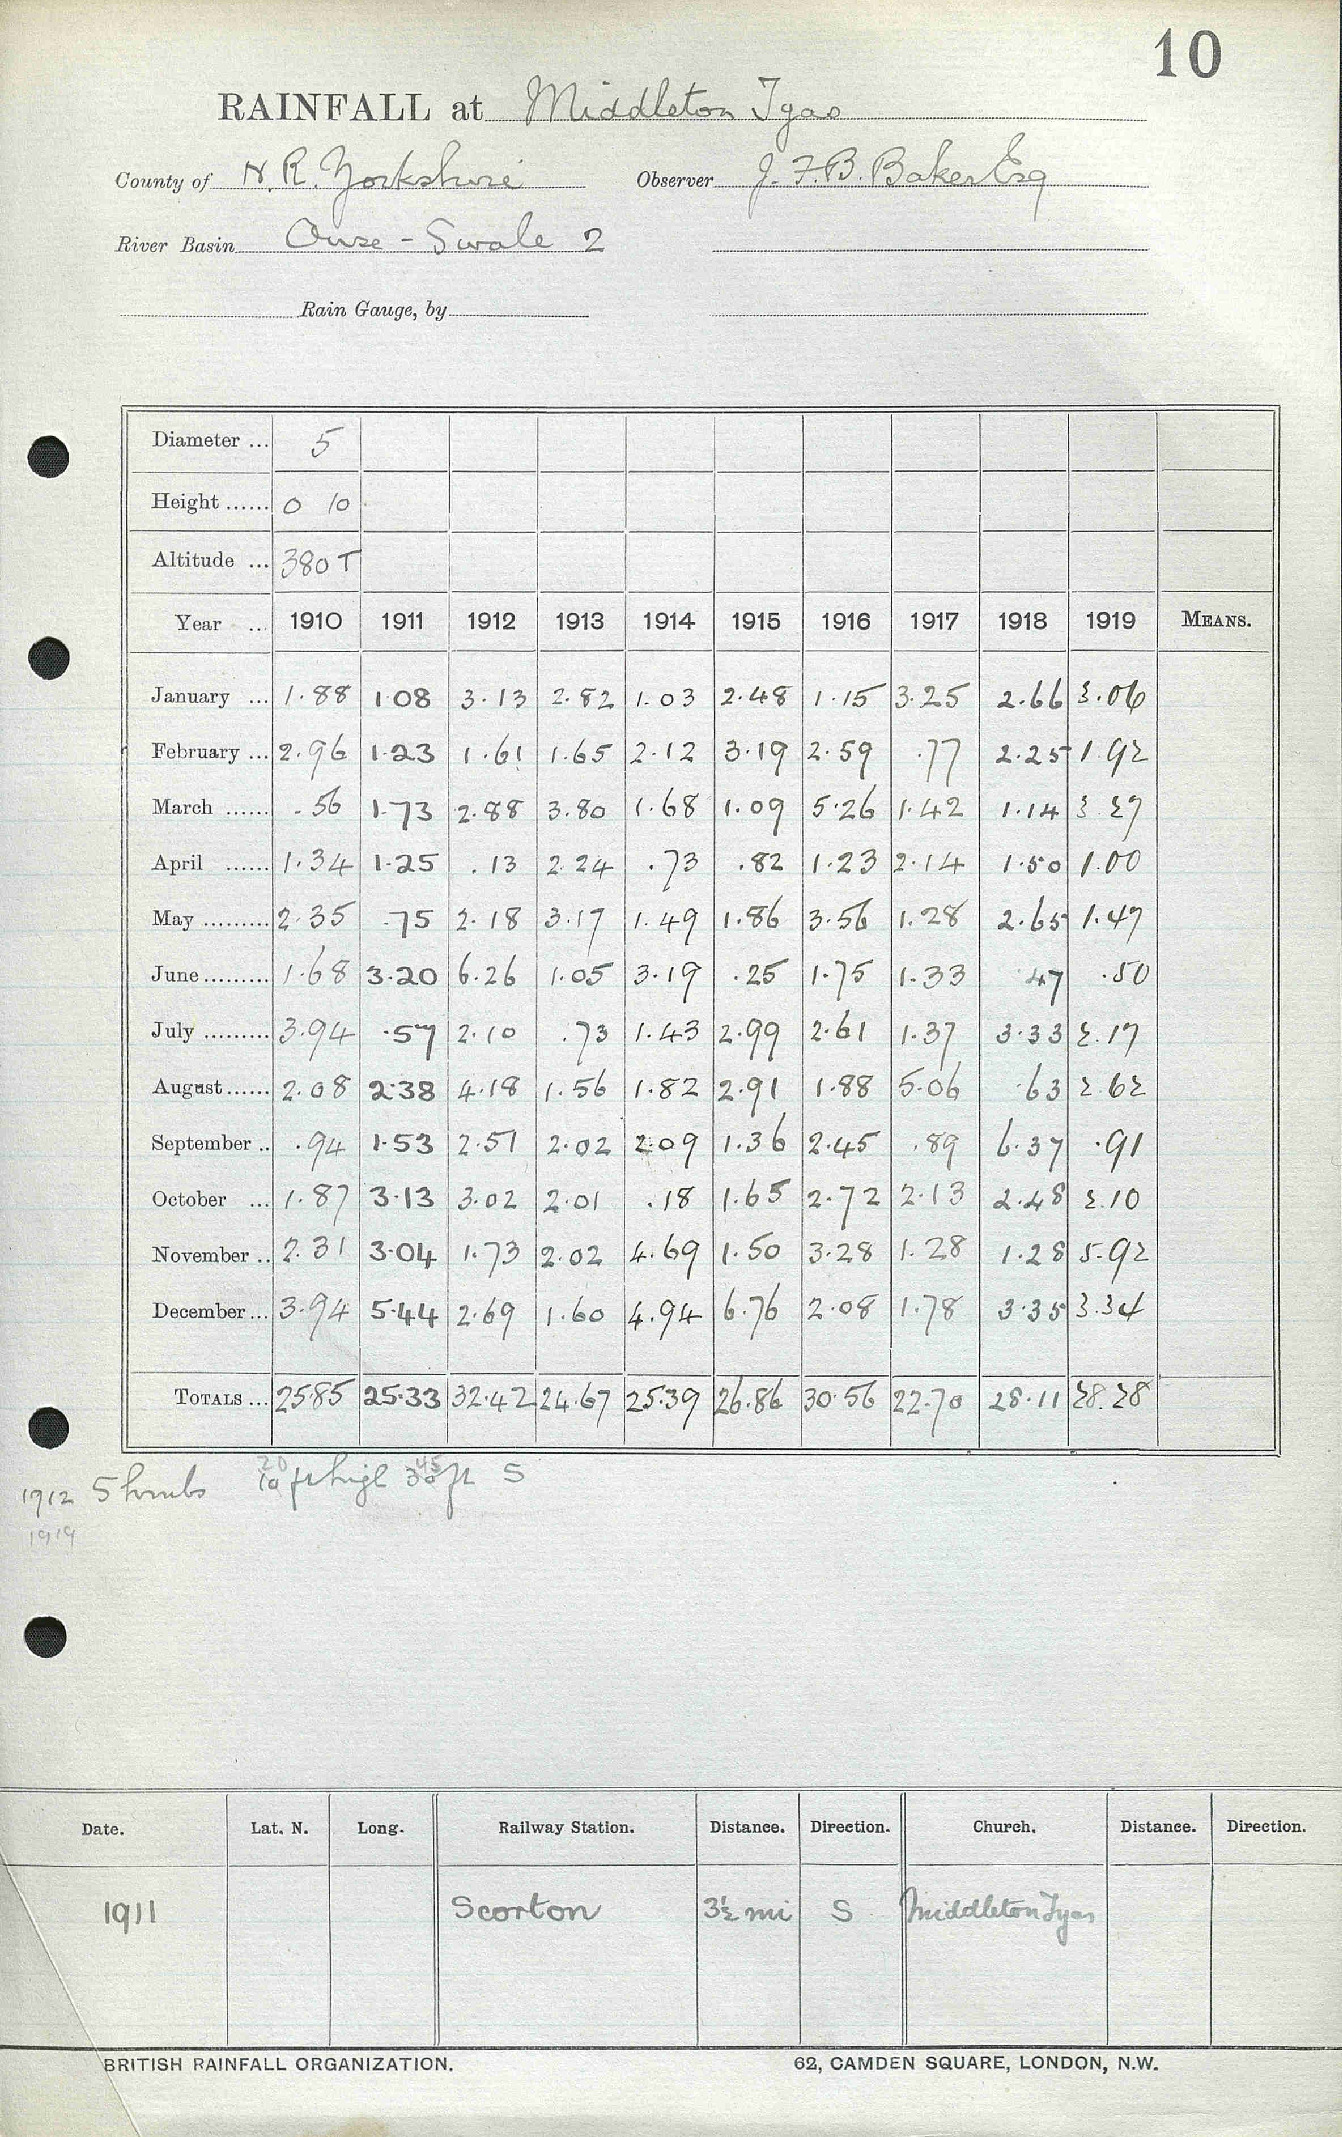 10
RAINFALL at Middleton Tyas
County of N. R. Yorkshire Observer J. F. B. Baker Esq
River Basin Ouse - Swale 2
Rain Gauge, by
Diameter ... 5
Height ...... 0 10
Altitude ... 380 T
Year ... 1910 1911 1912 1913 1914 1915 1916 1917 1918 1919 MEANS.
January ... 1.88 1.08 3.13 2.82 1.03 2.48 1.15 3.25 2.66 3.06
February ... 2.96 1.23 1.61 1.65 2.12 3.19 2.59 .77 2.25 1.92
March ...... .56 1.73 2.88 3.80 1.68 1.09 5.26 1.42 1.14 3.27
April ...... 1.34 1.25 .13 2.24 .73 .82 1.23 2.14 1.50 1.00
May ......... 2.35 .75 2.18 3.17 1.49 1.86 3.56 1.28 2.65 1.47
June ......... 1.68 3.20 6.26 1.05 3.19 .25 1.75 1.33 .47 .50
July ......... 3.94 .57 2.10 .73 1.43 2.99 2.61 1.37 3.33 2.17
August ...... 2.08 2.38 4.18 1.56 1.82 2.91 1.88 5.06 .63 2.62
September .. .94 1.53 2.51 2.02 2.09 1.36 2.45 .89 6.37 .91
October ... 1.87 3.13 3.02 2.01 .18 1.65 2.72 2.13 2.48 2.10
November .. 2.31 3.04 1.73 2.02 4.69 1.50 3.28 1.28 1.28 5.92
December ... 3.94 5.44 2.69 1.60 4.94 6.76 2.08 1.78 3.35 3.34
TOTALS ... 25.85 25.33 32.42 24.67 25.39 26.86 30.56 22.70 28.11 28.28
1912 Shrubs 10 ft high 30 ft S
1919 20 45
Date. Lat. N. Long. Railway Station. Distance. Direction. Church. Distance. Direction.
1911 Scorton 3½ mi S Middleton Tyas
BRITISH RAINFALL ORGANIZATION. 62, CAMDEN SQUARE, LONDON, N.W.